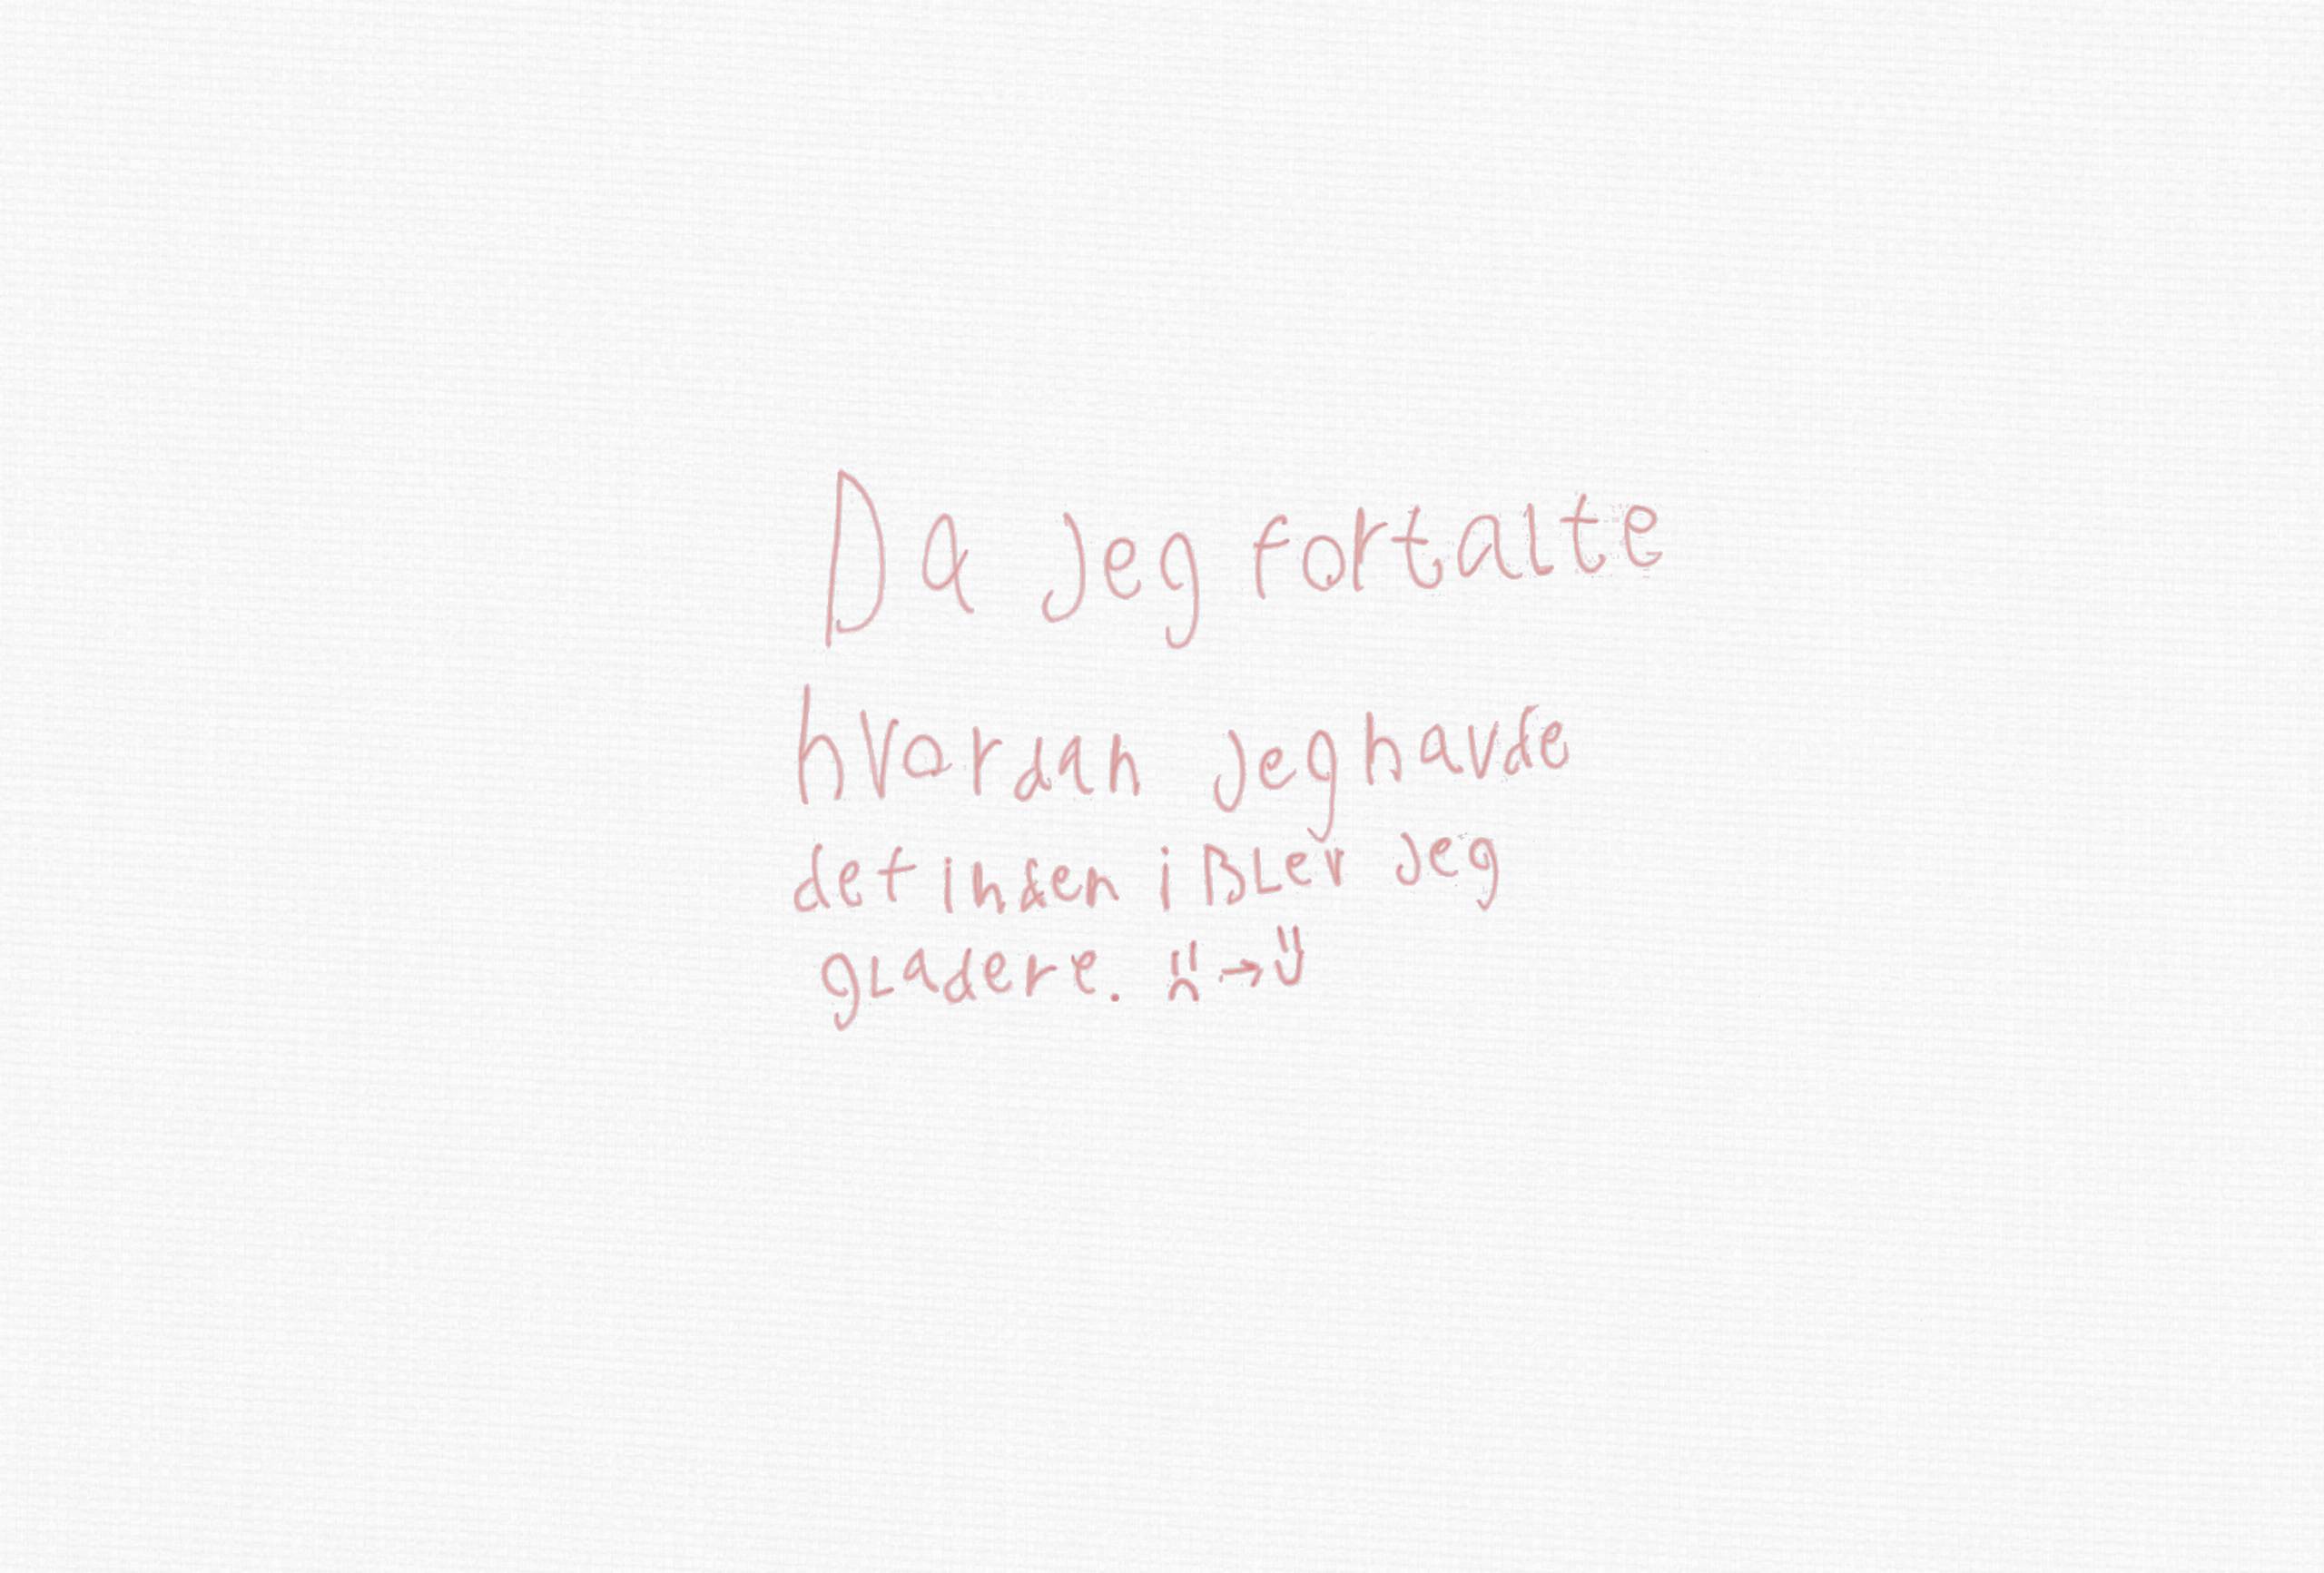 Da jeg fortalte
hvordan jeg havde
det inden i BLev jeg
gLadere. :( → :)